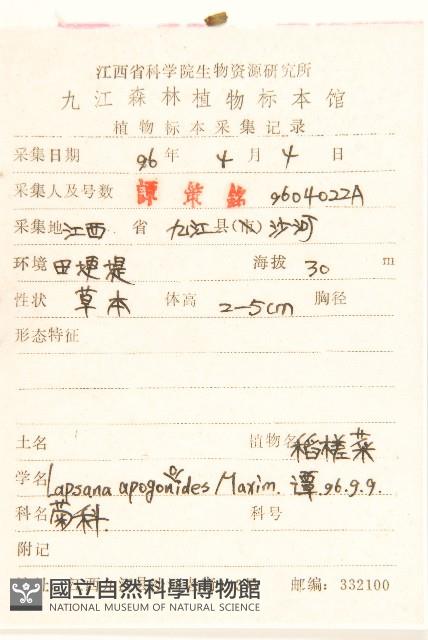 江西省科学院生物资源研究所
九江森林植物标本馆
植物标本采集记录
采集日期 96 年 4 月 4 日
采集人及号数 譚策銘 9604022A
采集地 江西 省 九江 县(市) 沙河
环境 田埂堤 海拔 30 m
性状 草本 体高 2-5cm 胸径
形态特征
土名 植物名 稻槎菜
学名 Lapsana apogonoides Maxim. 谭 96.9.9.
科名 菊科 科号
附记
邮编: 332100
國立自然科學博物館
NATIONAL MUSEUM OF NATURAL SCIENCE